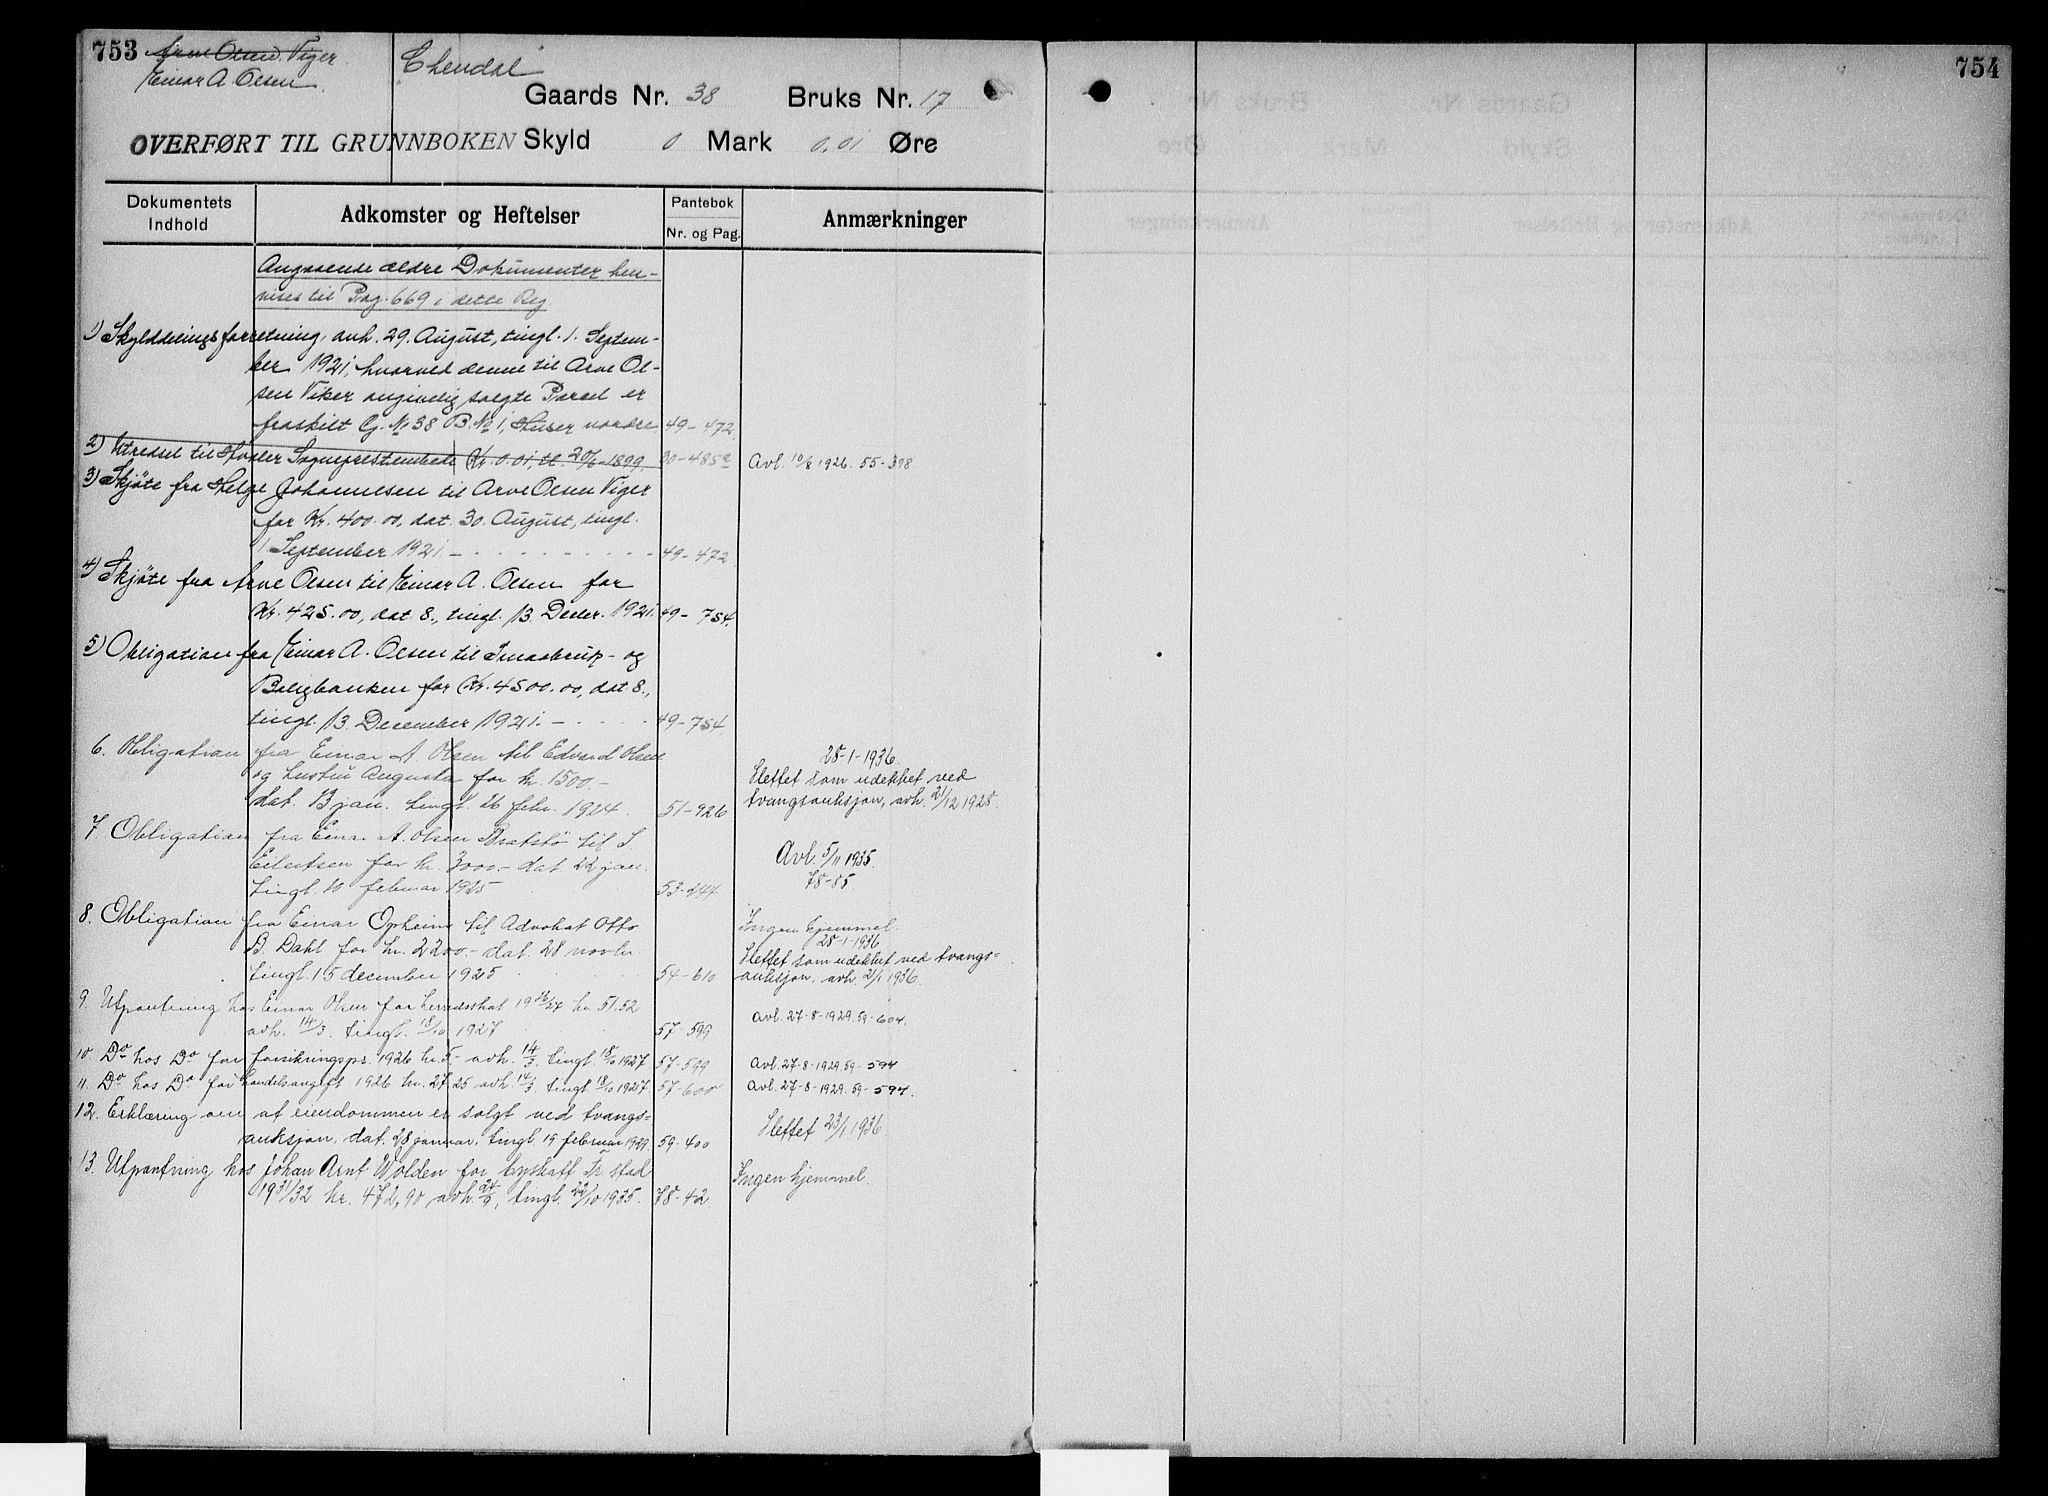 753
Arne Olsen Viger
Einar A. Olsen
"Elendal"
Gaards Nr. 38 Bruks Nr. 17
OVERFØRT TIL GRUNNBOKEN
Skyld 0 Mark 0.01 Øre
Dokumentets Indhold
Adkomster og Heftelser
Pantebok Nr. og Pag.
Anmærkninger
Angaaende ældre Dokumenter hen-
vises til Pag. 669 i dette Reg
1) Skylddelingsforretning, avh. 29. August, tingl. 1. Septem-
ber 1921, hvorved denne til Arve Ol-
sen Viker angivelig solgte Parcel er
fraskilt G. No 38 B. No 1, Huser nordre 49-472.
2) Utredsel til Hvaler Sogneprestembede Kr. 0.01, tl. 20/6-1899. 30-485a Avl. 10/8 1926. 55-398
3) Skjøte fra Helge Johannesen til Arve Olsen Viger
for Kr. 400.00, dat. 30. August, tingl.
1 September 1921 - 49-472
4) Skjøte fra Arve Olsen til Einar A. Olsen for
Kr. 425.00, dat 8., tingl. 13 Decbr. 1921. 49-754.
5) Obligation fra Einar A. Olsen til Smaabruk- og
Boligbanken for Kr. 4500.00, dat 8.,
tingl. 13. December 1921. - 49-754
6. Obligation fra Einar A. Olsen til Edvard Olsen
28-1-1936
og hustru Augusta for kr. 1500.-
Slettet som udekket ved
dat. 13 jan. tingl. 26 febr. 1924. 51-926
tvangsauksjon, avh. 21/12 1928.
7. Obligation fra Einar A. Olsen Bratstø til S.
Eilertsen for kr. 3000.- dat 22 jan.
Avl. 5/11 1935.
78-85
tingl. 10 februar 1925 53-244
8. Obligation fra Einar Opheim til Advokat Otto
Ingen hjemmel.
B. Dahl for kr. 2200.- dat. 28 novbr
28-1-1936
Slettet som udekket ved tvangs=
tingl. 15 december 1925 54-610
auksjon, avh. 21/1 1936.
9. Utpantning hos Einar Olsen for herredsskat 1926/27 kr 51.52
avh. 14/3 tingl. 18/10 1927 57-599
Avl. 27-8-1929. 59-604.
10. Do hos Do for forsikringspr. 1926 kr. 5- avh. 14/3 tingl 18/10 1927 57-599 Avl. 27-8-1929. 59-594
11. Do hos Do for handelsavgift 1926 kr. 27.25 avh 14/3 tingl 18/10 1927 57-600 Avl. 27-8-1929. 59-594.
12. Erklæring om at eiendommen er solgt ved tvangs=
auksjon, dat. 28 januar, tingl. 19 februar 1929. 59-400
Slettet 23/1 1936.
13. Utpantning hos Johan Arnt Wolden for byskatt Fr.stad
1931/32 kr. 472,90 avh. 24/9, tingl. 22/10 1935. 78-42.
Ingen hjemmel.
754